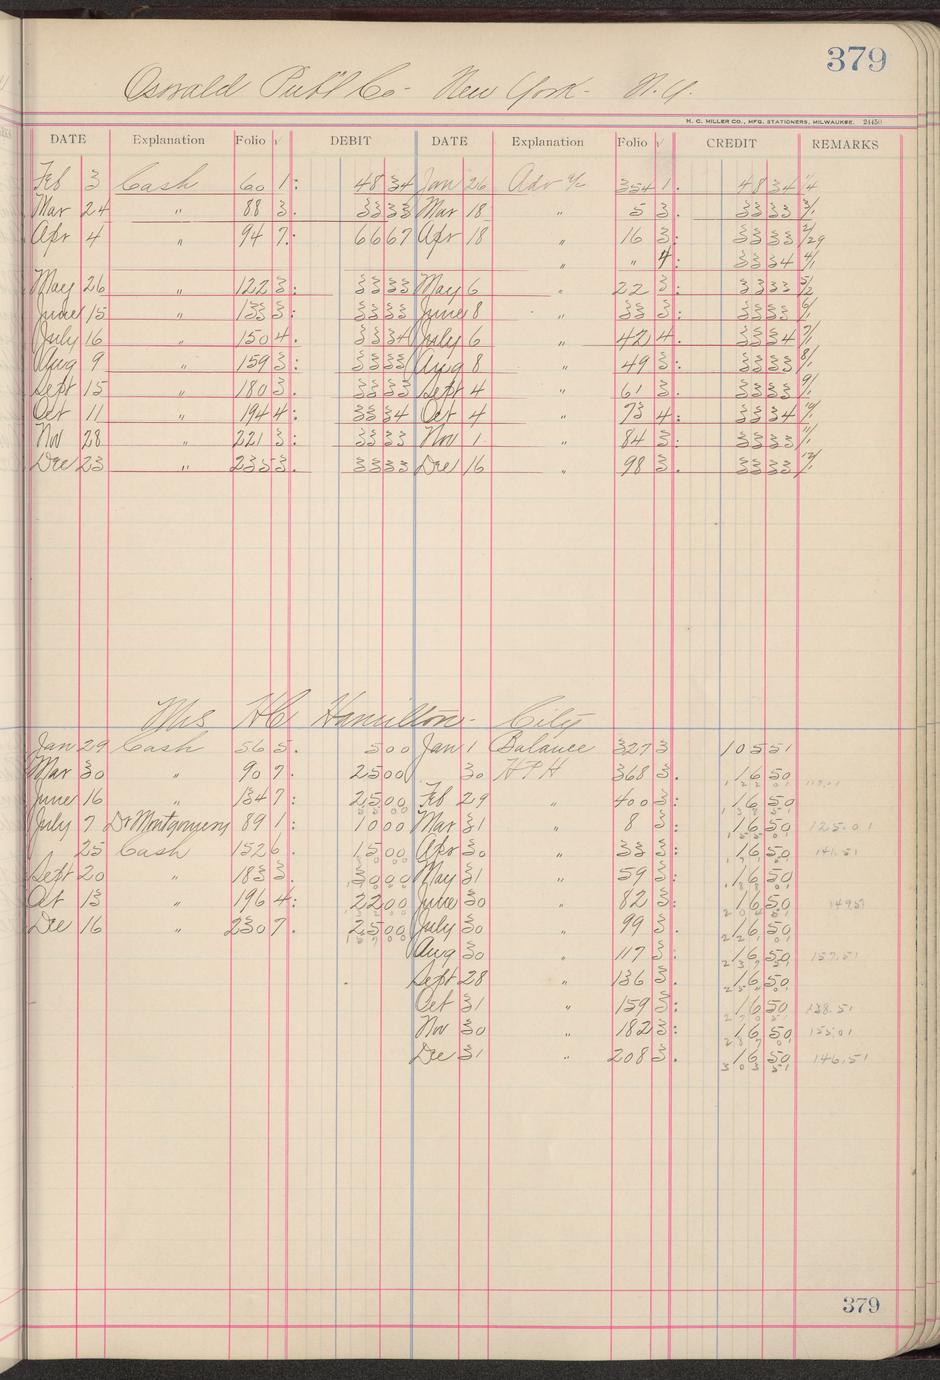 379
Oswald Publ Co - New York - N.Y.
H. C. MILLER CO., MFG. STATIONERS, MILWAUKEE. 24450
DATE Explanation Folio √ DEBIT DATE Explanation Folio √ CREDIT REMARKS
Feb 3 Cash 60 1: 48 34 Jan 26 Adv a/c 354 1. 48 34 1/4
Mar 24 " 88 3. 33 33 Mar 18 " 5 3. 33 33 3/1
Apr 4 " 94 7: 66 67 Apr 18 " 16 3: 33 33 2/29
" " 4: 33 34 4/1
May 26 " 122 3: 33 33 May 6 " 22 3: 33 33 5/2
June 15 " 133 3: 33 33 June 8 " 33 3: 33 33 6/1
July 16 " 150 4. 33 34 July 6 " 42 4. 33 34 7/1
Aug 9 " 159 3: 33 33 Aug 8 " 49 3: 33 33 8/1
Sept 15 " 180 3. 33 33 Sept 4 " 61 3. 33 33 9/1
Oct 11 " 194 4: 33 34 Oct 4 " 73 4: 33 34 10/1
Nov 28 " 221 3: 33 33 Nov 1 " 84 3: 33 33 11/1
Dec 23 " 235 3. 33 33 Dec 16 " 98 3. 33 33 12/1
Mrs HC Hamilton - City
Jan 29 Cash 56 5. 5 00 Jan 1 Balance 327 3 105 51
Mar 30 " 90 7. 25 00 30 HPH 368 3. 16 50
June 16 " 134 7: 25 00 Feb 29 " 400 3: 16 50
July 7 Dr Montgomery 89 1: 10 00 Mar 31 " 8 3: 16 50 125.01
25 Cash 152 6. 15 00 Apr 30 " 33 3: 16 50 141.51
Sept 20 " 183 3. 30 00 May 31 " 59 3: 16 50
Oct 13 " 196 4: 22 00 June 30 " 82 3: 16 50 149 51
Dec 16 " 230 7. 25 00 July 30 " 99 3. 16 50
Aug 30 " 117 3: 16 50 157.51
Sept 28 " 136 3. 16 50
Oct 31 " 159 3: 16 50 138.51
Nov 30 " 182 3: 16 50 155.01
Dec 31 " 208 3. 16 50 146.51
379